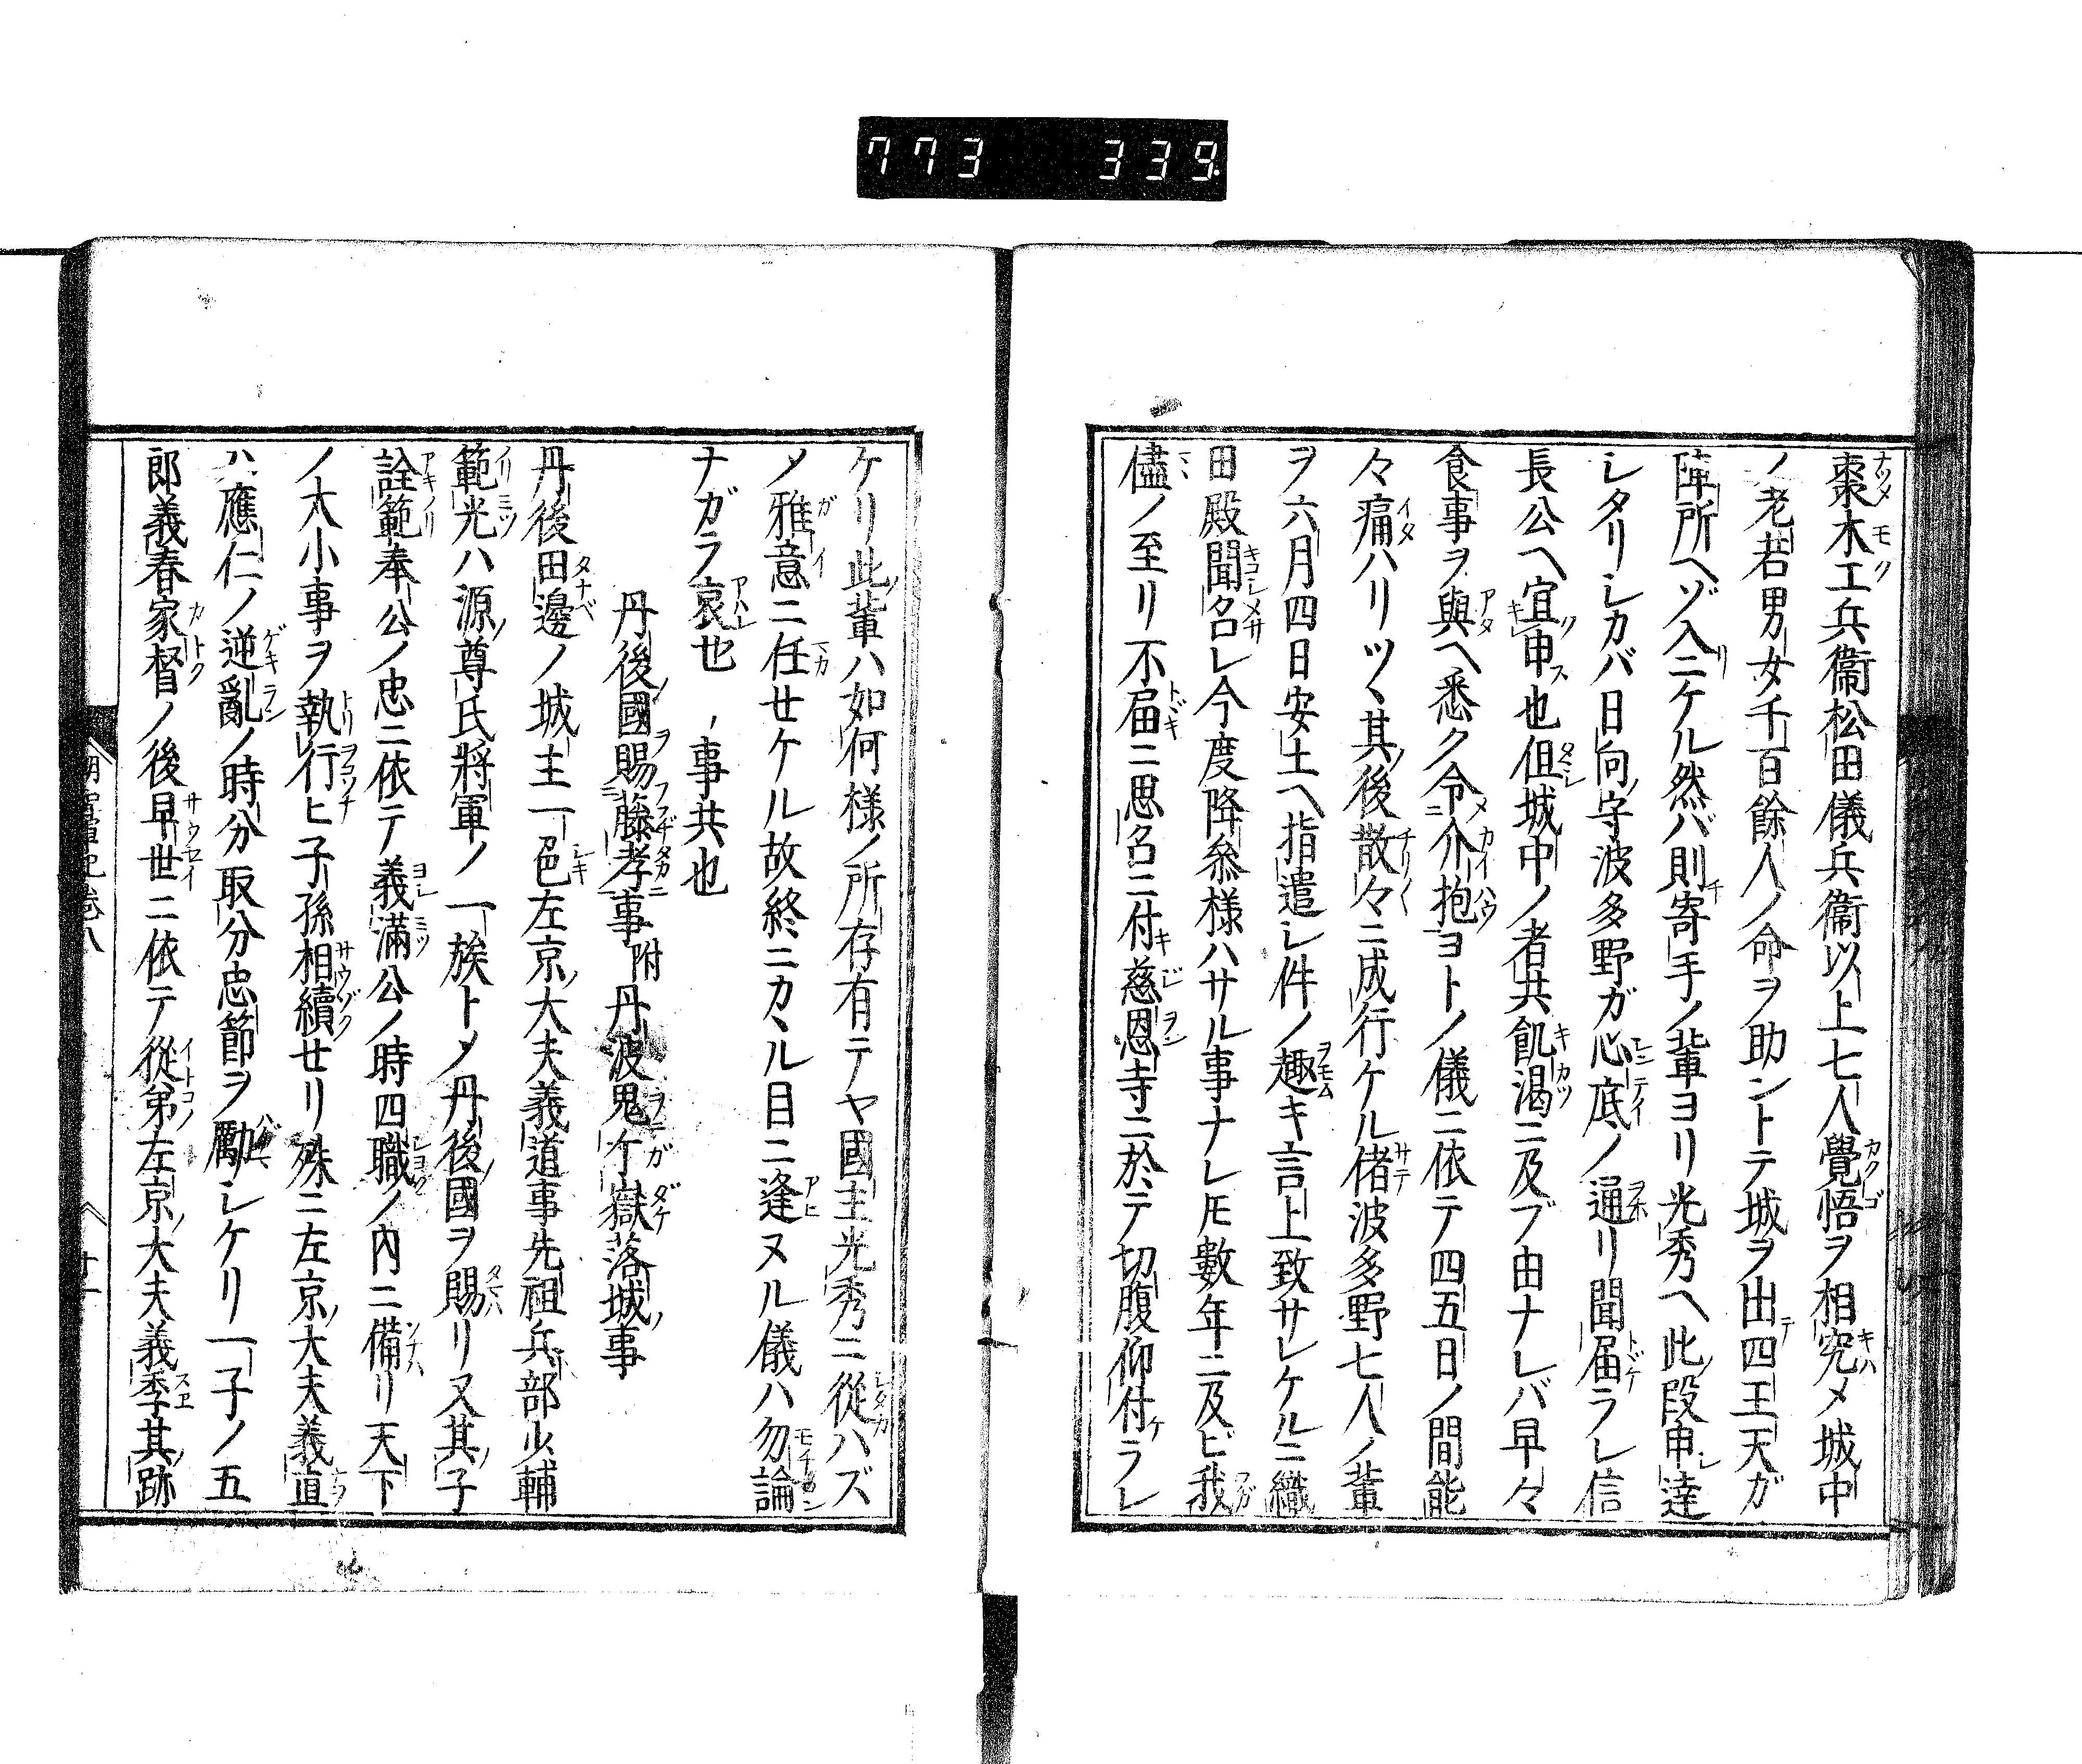 773 339
棗木工兵衞松田儀兵衞以上七人覺悟ヲ相究メ城中
ノ老若男女千百餘人ノ命ヲ助ントテ城ヲ出四王天ガ
陣所ヘゾ入ニケル然バ則寄手ノ輩ヨリ光秀ヘ此段申達
シタリシカバ日向守波多野ガ心底ノ通リ聞届ラレ信
長公ヘ宜申也但城中ノ者共飢渇ニ及ブ由ナレバ早々
食事ヲ與ヘ悉ク令介抱ヨトノ儀ニ依テ四五日ノ間能
々痛ハリツヽ其後散々ニ成行ケル偖波多野七人ノ輩
ヲ六月四日安土ヘ指遣シ件ノ趣キ言上致サレケルニ織
田殿聞召レ今度降參様ハサル事ナレ𪜈數年ニ及ビ我
儘ノ至リ不届ニ思召ニ付慈恩寺ニ於テ切腹仰付ラレ
ケリ此輩ハ如何様ノ所存有テヤ國主光秀ニ從ハズ
〆雅意ニ任セケル故終ニカヽル目ニ逢ヌル儀ハ勿論
ナガラ哀也ヽ事共也
丹後國賜藤孝事附丹波鬼ケ嶽落城事
丹後田邊ノ城主一色左京大夫義道事先祖兵部少輔
範光ハ源尊氏將軍ノ一族ト〆丹後國ヲ賜リ又其子
詮範奉公ノ忠ニ依テ義滿公ノ時四職ノ內ニ備リ天下
ノ大小事ヲ執行ヒ子孫相續セリ殊ニ左京大夫義直
ハ應仁ノ逆亂ノ時分取分忠節ヲ勵シケリ一子ノ五
郎義春家督ノ後早世ニ依テ從弟左京大夫義季其跡